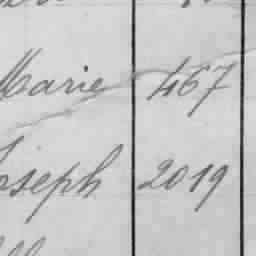 Marie 467
Joseph 2019